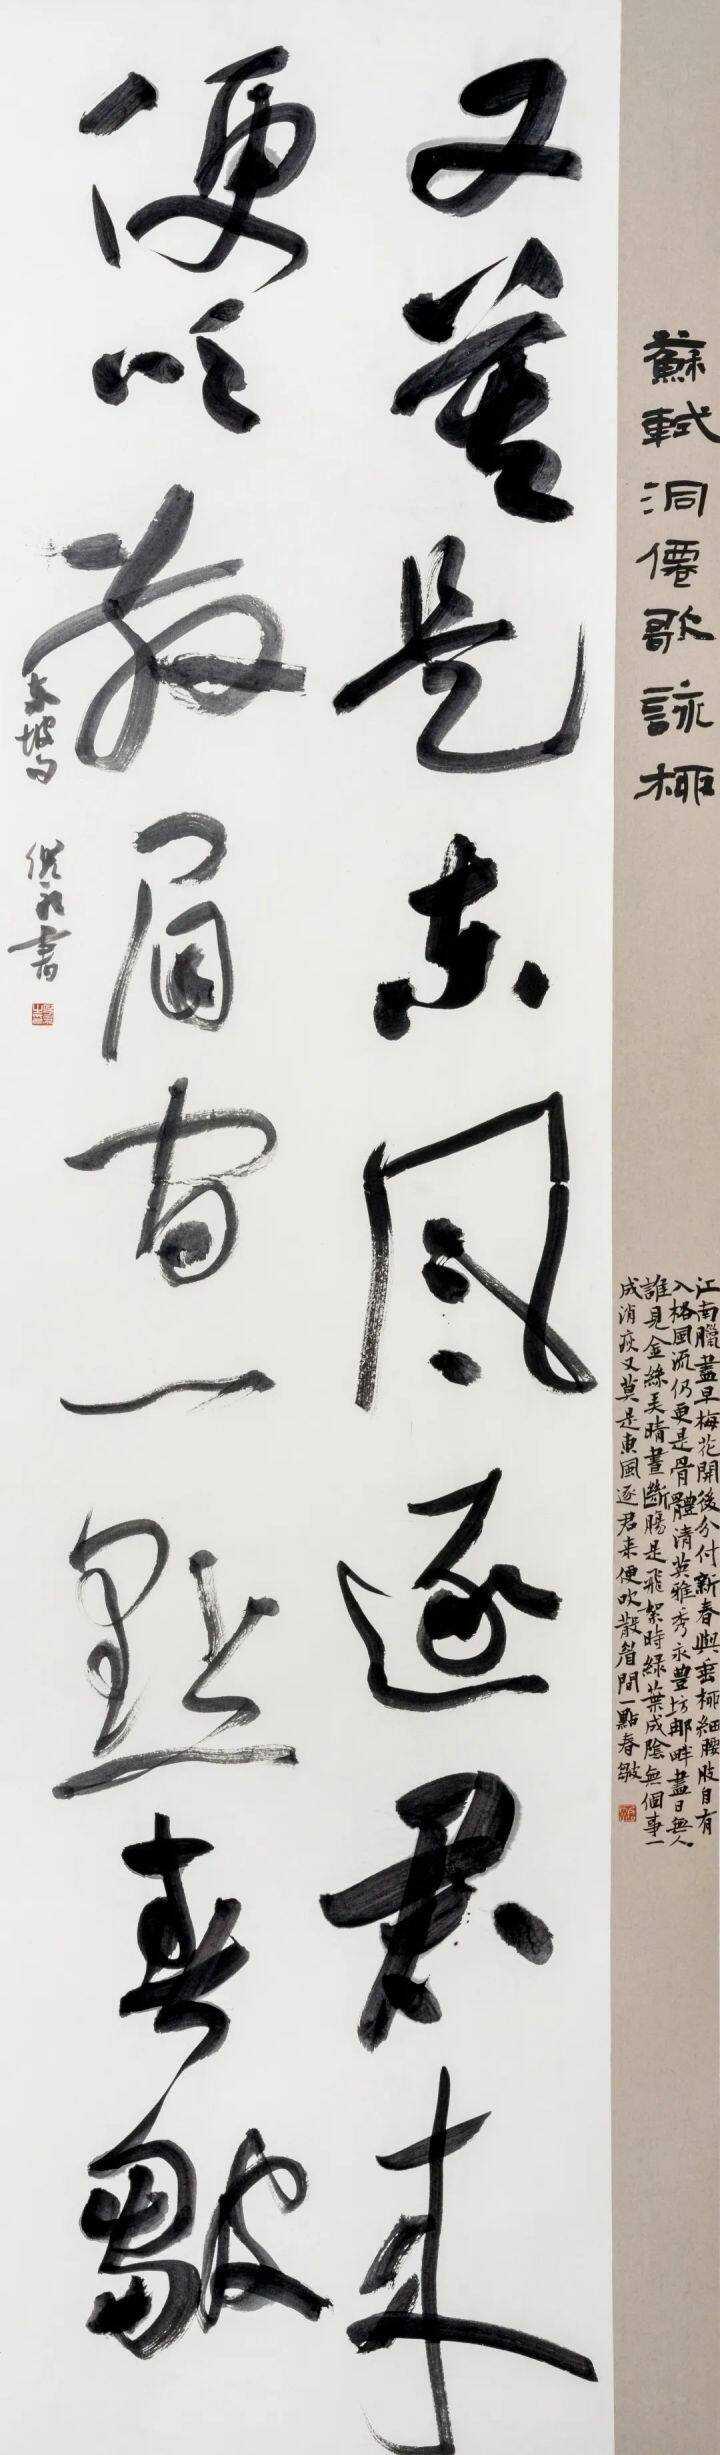 蘇軾洞僊歌詠桺
江南臘盡早梅花開後分付新春與垂桺細腰肢自有
入格風流仍更是骨體清英雅秀永豐坊那畔盡日無人
誰見金絲弄晴晝斷腸是飛絮時綠葉成陰無個事一
成消瘦又莫是東風逐君来便吹散眉間一點春皺
又莫是东风逐君来
便吹散眉间一點春皺
东坡句 書